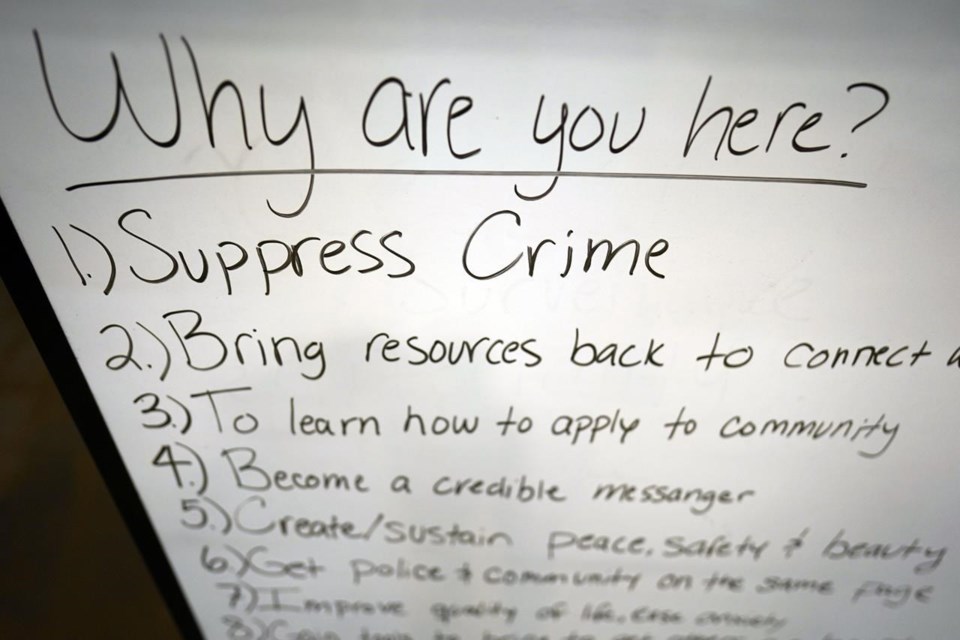 Why are you here?
1.) Suppress Crime
2.) Bring resources back to connect
3.) To learn how to apply to community
4.) Become a credible messanger
5.) Create/sustain peace, safety & beauty
6.) Get police & community on the same page
7.) Improve quality of life, ease anxiety
8.)